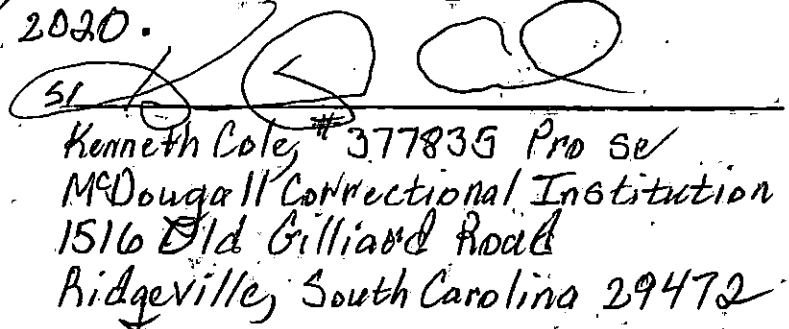 2020.
S/
Kenneth Cole, #377835 Pro se
McDougall Correctional Institution
1516 Old Gilliard Road
Ridgeville, South Carolina 29472